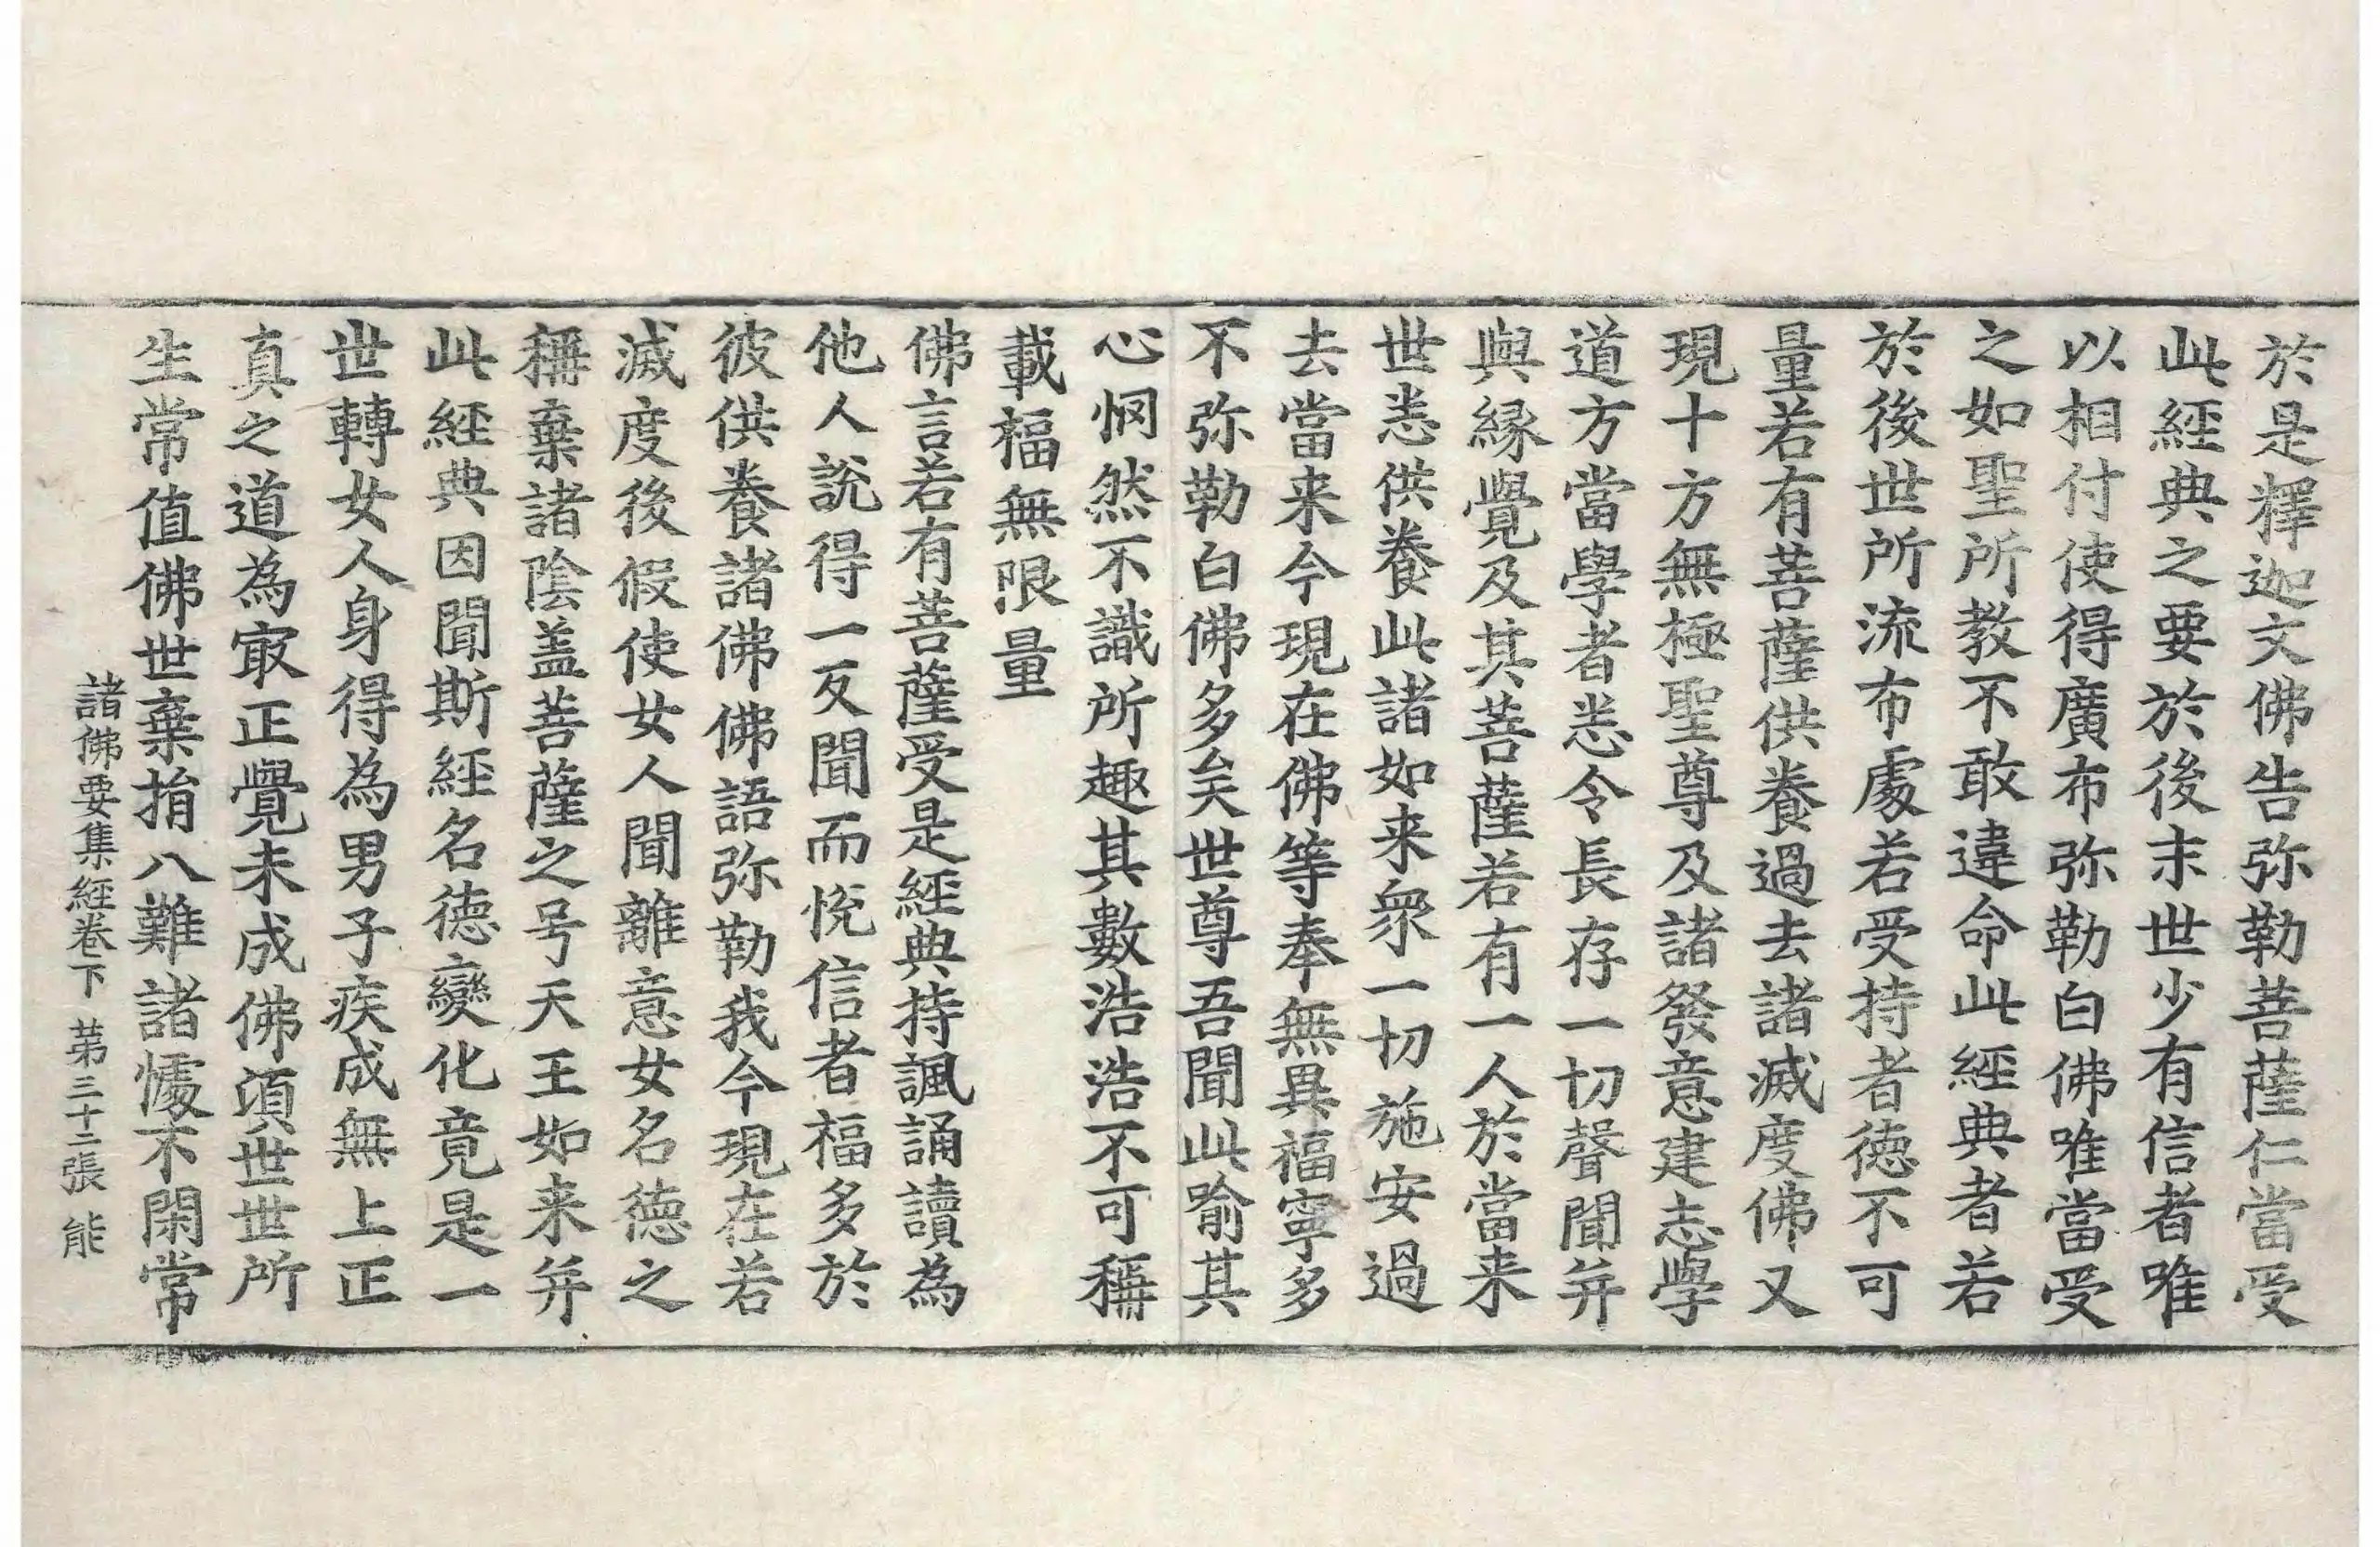 於是釋迦文佛告弥勒菩薩仁當受
此經典之要於後末世少有信者唯
以相付使得廣布弥勒白佛唯當受
之如聖所教不敢違命此經典者若
於後世所流布處若受持者德不可
量若有菩薩供養過去諸滅度佛又
現十方無極聖尊及諸發意建志學
道方當學者悉令長存一切聲聞并
與緣覺及其菩薩若有一人於當来
世悉供養此諸如来衆一切施安過
去當来今現在佛等奉無異福寧多
不弥勒白佛多矣世尊吾聞此喻其
心惘然不識所趣其數浩浩不可稱
載福無限量
佛言若有菩薩受是經典持諷誦讀為
他人說得一反聞而悅信者福多於
彼供養諸佛佛語弥勒我今現在若
滅度後假使女人聞離意女名德之
稱棄諸陰盖菩薩之号天王如来并
此經典因聞斯經名德變化竟是一
世轉女人身得為男子疾成無上正
真之道為㝡正覺未成佛頂世世所
生常值佛世棄捐八難諸懅不閑常
諸佛要集經卷下 苐三十二張 能